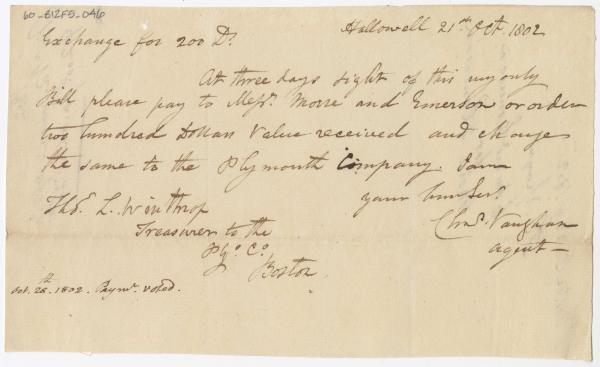 60-B12F5-046
Hallowell 21st Oct. 1802
Exchange for 200 Ds.
At three days sight of this my only
Bill please pay to Messrs. Morse and Emerson or order
two hundred Dollars Value received and charge
the same to the Plymouth Company. I am
your hum Ser.
Tho. L. Winthrop
Chas. Vaughan
Treasurer to the
agent
Plyo. Co.
Boston.
Oct. 28th. 1802. Paymt. voted.